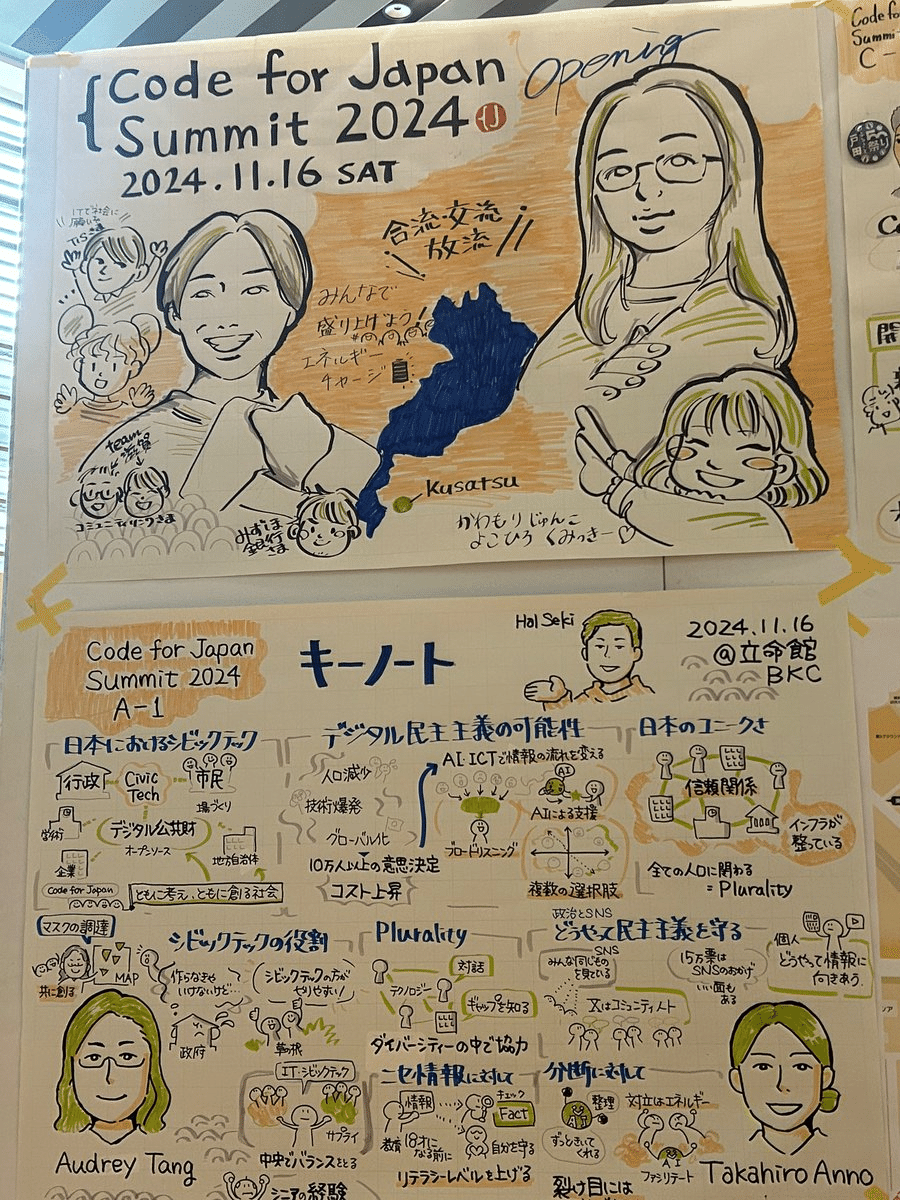 Code for Japan
Summit 2024
Opening
2024.11.16 SAT
合流・交流
放流
みんなで
盛り上げよう!
エネルギー
チャージ
team
滋賀
コミュニティリンクさま
みずほ
銀行
さま
Kusatsu
かわもりじゅんこ
よこひろ くみっきー♡
Code for
Summit
C-
Code for Japan
Summit 2024
A-1
キーノート
Hal Seki
2024.11.16
@立命館
BKC
日本におけるシビックテック
行政
Civic
Tech
市民
場づくり
学術
デジタル公共財
オープンソース
企業
地方自治体
Code for Japan
ともに考え、ともに創る社会
デジタル民主主義の可能性
人口減少
技術爆発
グローバル化
10万人以上の意思決定
コスト上昇
AI・ICTで情報の流れを変える
AI
AIによる支援
ブロードリスニング
複数の選択肢
日本のユニークさ
信頼関係
インフラが
整っている
全ての人口に関わる
= Plurality
マスクの調達
MAP
共に創る
シビックテックの役割
作らなきゃ
いけないけど…
シビックテックの方が
やりやすい!
政府
草の根
IT・シビックテック
サプライ
中央でバランスをとる
シニアの経験
Audrey Tang
Plurality
対話
テクノロジー
ギャップを知る
ダイバーシティーの中で協力
ニセ情報に対して
情報
チェック
Fact
教育
18才に
なる前に
自分を守る
リテラシーレベルを上げる
政治とSNS
どうやって民主主義を守る
SNS
みんな同じもの
を見ている
15万票は
SNSのおかげ
いい面も
ある
Xはコミュニティノート
個人
どうやって情報に
向きあう
分断に対して
AI
整理
ずっときいて
くれる
対立はエネルギー
AI
ファシリテート
裂け目には
Takahiro Anno